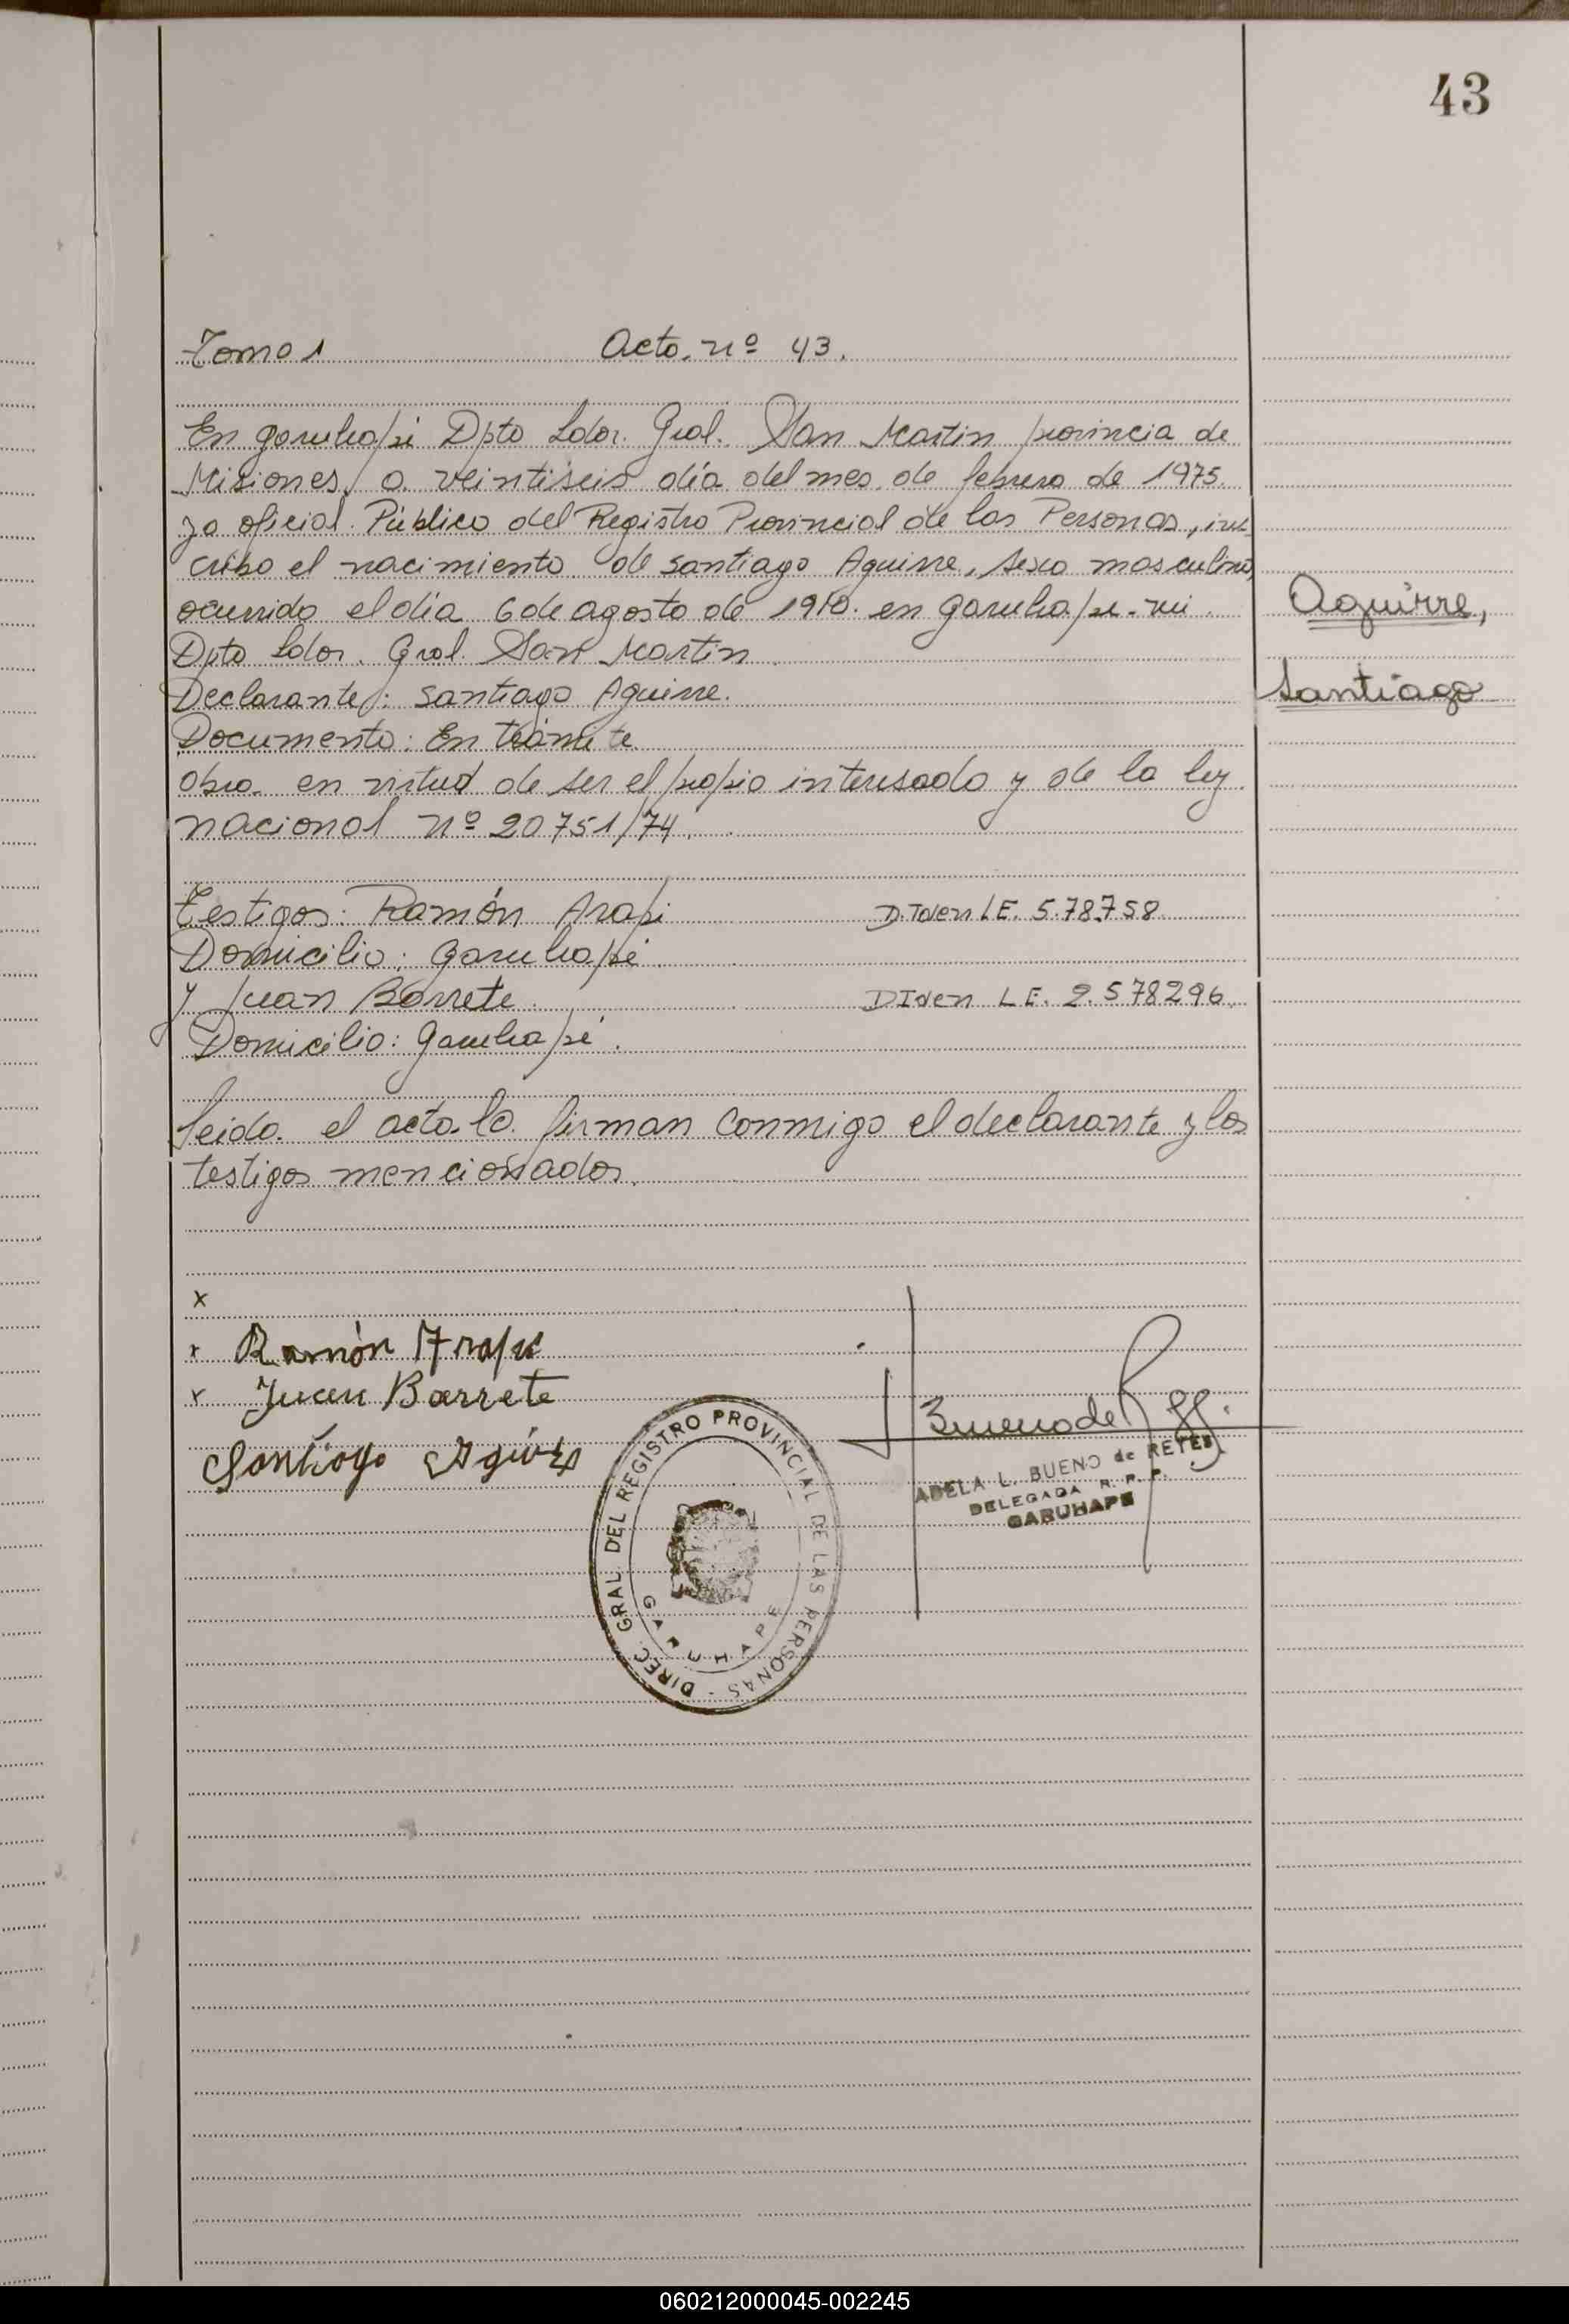 43
Tomo 1 Acta nº 43.
En Garuhapé Dpto Ldor. Gral. San Martin provincia de
Misiones, a veintiseis día del mes de febrero de 1975.
yo oficial Público del Registro Provincial de las Personas, ins-
cribo el nacimiento de Santiago Aguirre, sexo masculino,
ocurrido el día 6 de agosto de en Garuhapé-mi.
Aguirre,
Dpto Ldor. Gral. San Martin
Declarante: Santiago Aguirre.
Santiago
Documento: En trámite
obra en virtud de ser el propio interesado y de la ley
nacional nº 20751/74.
Testigos: Ramón Arapi D.Iden LE. 578758
Domicilio: Garuhapé.
y Juan Barrete. DIden LE. 2.578296.
Domicilio: Garuhapé.
Leida el acta la firman conmigo el declarante y los
testigos mencionados.
x
x Ramón Arapi
x Juan Barrete
Santiago
Bueno de
ADELA L. BUENO de RETES
DELEGADA R. P. P.
GARUHAPE
DIREC. GRAL. DEL REGISTRO PROVINCIAL DE LAS PERSONAS -
GARUHAPE
060212000045-002245